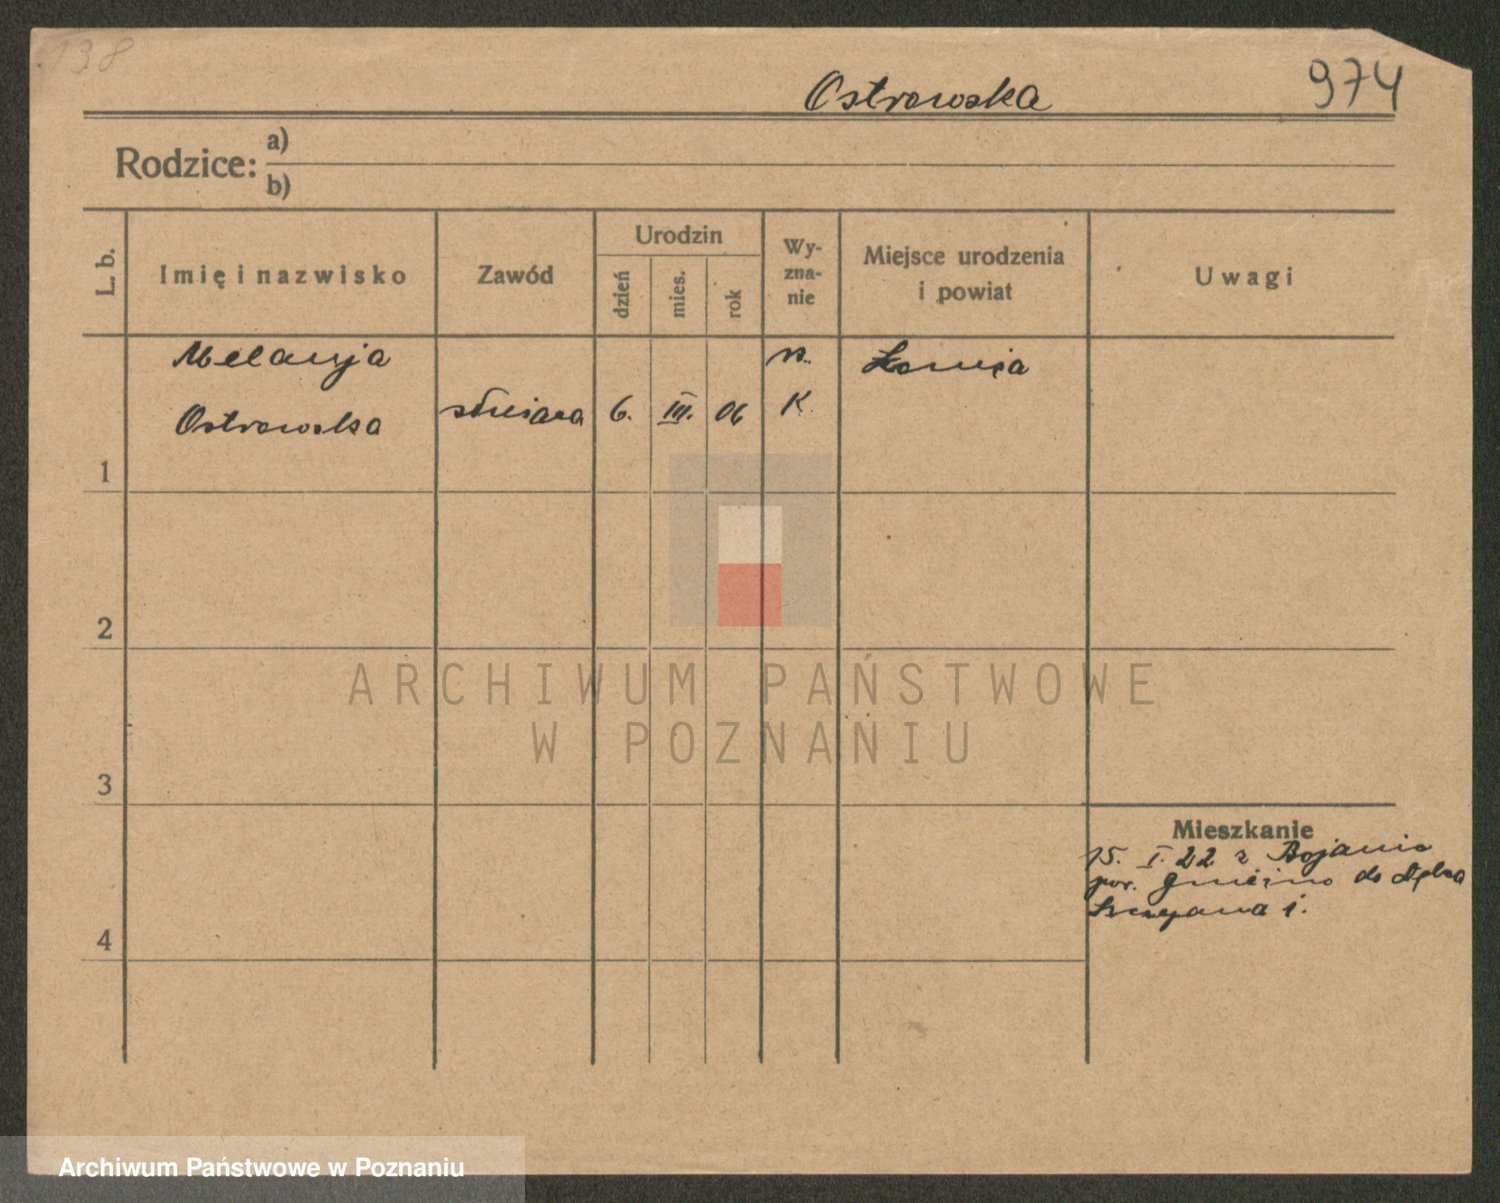 138
Ostrowska 974
Rodzice: a)
b)
L. b.
Imię i nazwisko
Zawód
Urodzin
dzień
mies.
rok
Wy-
zna-
nie
Miejsce urodzenia
i powiat
Uwagi
Melanja
Ostrowska
6. III. 06
K.
1
2
3
4
Mieszkanie
15. I. 22 z
pow. Gniezno do Dęba
Szczepana i.
ARCHIWUM PAŃSTWOWE
W POZNANIU
Archiwum Państwowe w Poznaniu